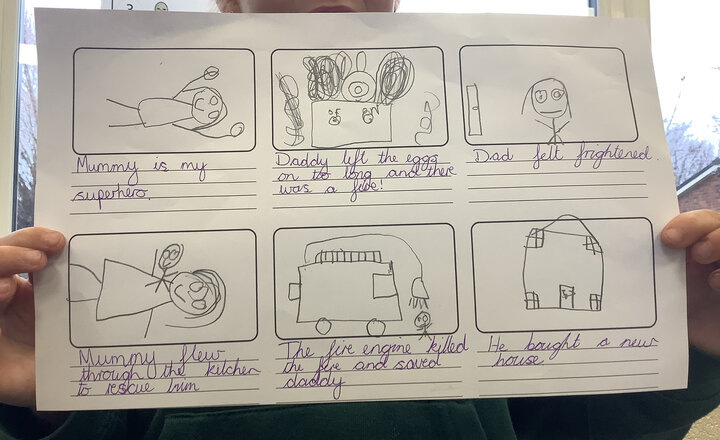 3
Mummy is my
superhero.
Daddy left the eggs
on too long and there
was a fire!
Dad felt frightened.
Mummy flew
through the kitchen
to rescue him
The fire engine killed
the fire and saved
daddy
He bought a new
house